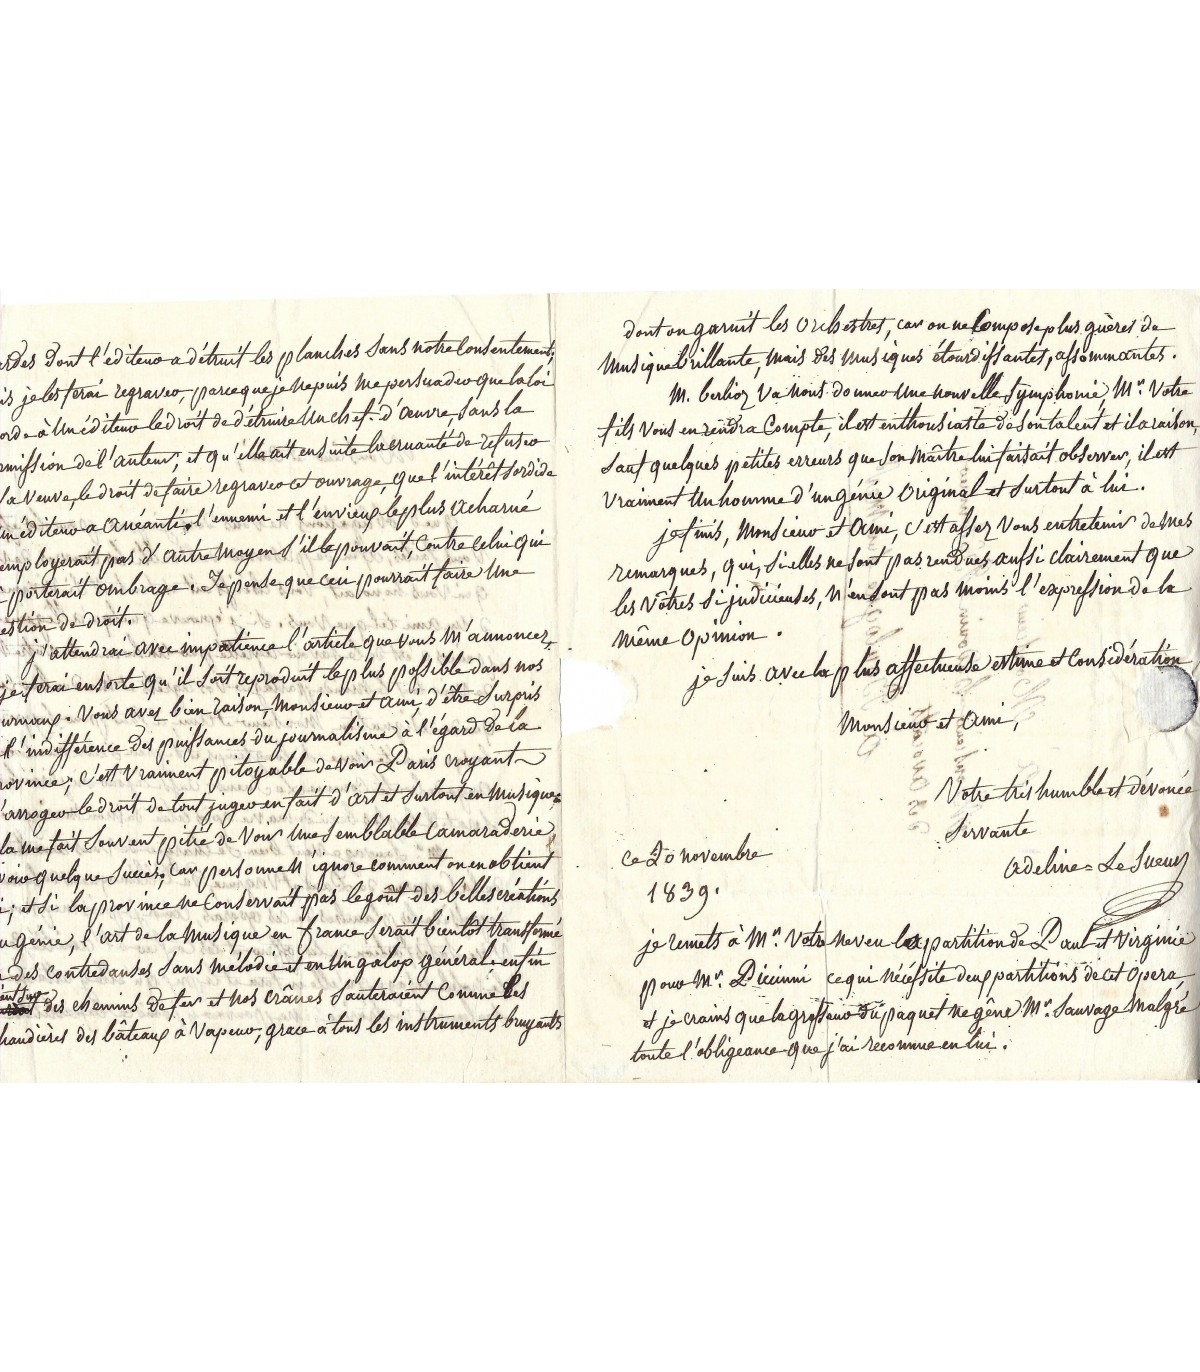 ardes dont l'éditeur a détruit les planches sans notre consentement;
is je les ferai regraver, parceque je ne puis me persuader que la loi
orde à un éditeur le droit de détruire un chef-d'œuvre, sans la
rmission de l'auteur, et qu'elle ait ensuite la cruauté de refuser
sa veuve, le droit de faire regraver cet ouvrage, que l'intérêt sordide
un éditeur a anéanti. l'ennemi et l'envieux le plus acharné
employerait pas d'autre moyen s'il le pouvait, contre celui qui
i porterait ombrage. Je pense que ceci pourrait faire une
estion de droit.
j'attendrai avec impatience l'article que vous m'annoncez,
je ferai en sorte qu'il soit reproduit le plus possible dans nos
urnaux. Vous avez bien raison, Monsieur et ami, d'être surpris
l'indifférence des puissances du journalisme à l'égard de la
rovince; c'est vraiment pitoyable de voir Paris croyant
s'arroger le droit de tout juger en fait d'art et surtout en musique.
la me fait souvent pitié de voir une semblable camaraderie
voir quelque succès; car personne n'ignore comment on en obtient
i; et si la province ne conservait pas le goût des belles créations
u génie, l'art de la musique en france serait bientôt transformé
des contredanses sans mélodie et en un galop général. enfin
des chemins de fer et nos crânes sauteraient comme les
haudières des bâteaux à vapeur, grace à tous les instruments bruyants
dont on garnit les orchestres, car on ne compose plus guères de
musique brillante, mais des musiques étourdissantes, assommantes.
M. berlioz va nous donner une nouvelle symphonie, Mr. Votre
fils vous en rendra compte, il est enthousiaste de son talent et il a raison,
sauf quelques petites erreurs que son maître lui faisait observer, il est
vraiment un homme d'un génie original et surtout à lui.
je finis, Monsieur et Ami, c'est assez vous entretenir de mes
remarques, qui, si elles ne sont pas rendues aussi clairement que
les vôtres si judicieuses, n'en sont pas moins l'expression de la
même opinion.
je suis avec la plus affectueuse estime et considération
Monsieur et Ami,
Votre très humble et dévouée
servante
adeline = Le Sueur
ce 20 novembre
1839.
je remets à Mr. Votre neveu la partition de Paul et Virginie
pour Mr. Piccinni ce qui nécéssite deux partitions de cet opera
et je crains que la grosseur du paquet ne gêne Mr. Sauvage malgré
toute l'obligeance que j'ai reconnue en lui.